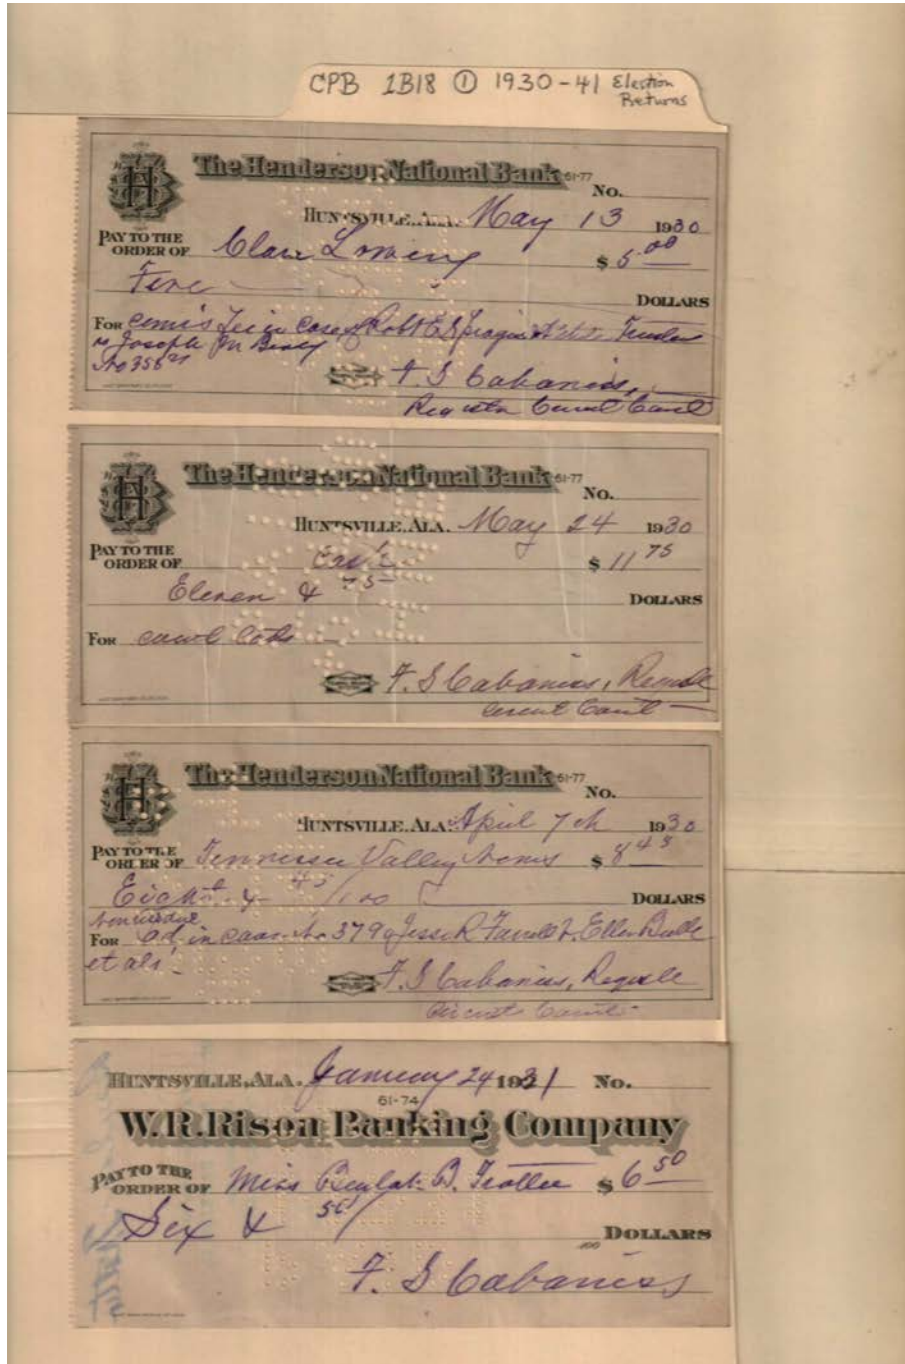 CPB 1B18 ① 1930-41 Election
Returns
The Henderson National Bank 61-77
No.
HUNTSVILLE, ALA. May 13 1930
PAY TO THE
ORDER OF Clara $ 5.00
Five
DOLLARS
FOR Com's Fee in Case of Robt E Spragins
vs Joseph M
No 356
F. S Cabaniss,
Register Circuit Court
The Henderson National Bank 61-77
No.
HUNTSVILLE, ALA. May 24 1930
PAY TO THE
ORDER OF Cash $ 11 75
Eleven & 75
DOLLARS
FOR court
F. S Cabaniss,
Circuit Court
The Henderson National Bank 61-77
No.
HUNTSVILLE, ALA. April 7th 1930
PAY TO THE
ORDER OF Tennessee Valley $ 8 45
Eight & 45/100
DOLLARS
FOR ad, in case No 379 Jesse R vs. Ellen
et als.
F. S Cabaniss,
Circuit Court
HUNTSVILLE, ALA. January 24 1931 No.
61-74
W. R. Rison Banking Company
PAY TO THE
ORDER OF Miss Beulah B. Trotter $ 6 50
Six & 50/100 DOLLARS
F. S Cabaniss